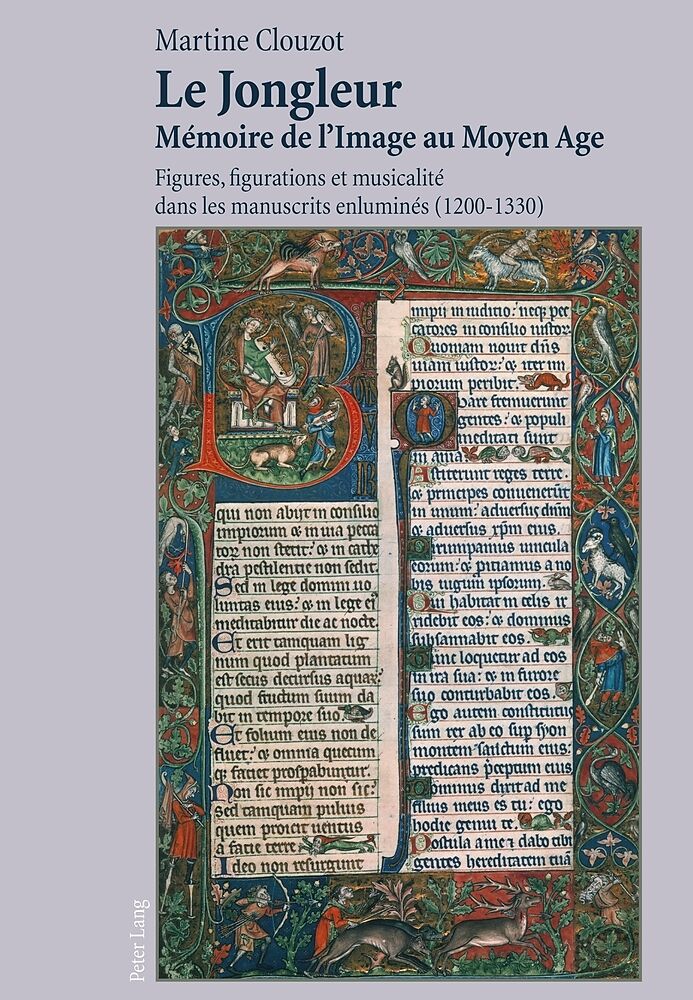 Martine Clouzot
Le Jongleur
Mémoire de l'Image au Moyen Age
Figures, figurations et musicalité
dans les manuscrits enluminés (1200-1330)
qui non abijt in consilio
impiorum & in uia pecca
toꝝ non stetit: & in cathe
dra pestilentie non sedit.
Sed in lege domini uo
luntas eius: & in lege ei
meditabitur die ac nocte.
Et erit tamquam lig
num quod plantatum
est secus decursus aquaꝝ:
quod fructum suum da
bit in tempore suo.
Et folium eius non de
fluet: & omnia quecum
q; faciet prosperabuntur.
Non sic impij non sic:
sed tamquam puluis
quem proicit uentus
a facie terre
Ideo non resurgunt
impij in iuditio: neq; pec
catores in consilio iustoꝝ.
Quoniam nouit dñs
uiam iustoꝝ: & iter im
piorum peribit.
Quare fremuerunt
gentes: & populi
meditati sunt
in ania.
Astiterunt reges terre.
& principes conuenerūt
in unum: aduersus dñm
& aduersus xp̄m eius.
Dirumpamus uincula
eorum: & proiciamus a no
bis iugum ipsorum.
Qui habitat in celis ir
ridebit eos: & dominus
subsannabit eos.
Tunc loquetur ad eos
in ira sua: & in furore
suo conturbabit eos.
Ego autem constitutus
sum rex ab eo sup syon
montem sanctum eius:
predicans p̄ceptum eius
Dominus dixit ad me
filius meus es tu: ego
hodie genui te.
Postula a me & dabo tibi
gentes hereditatem tuā
Peter Lang